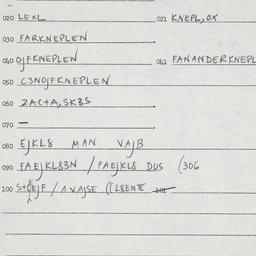 020 LEXL 021 KNEPL,OX
030 FARKNEPLEN
040 OJFKNEPLEN 041 FANANDERKNEPL
050 C3NOJFKNEPLEN
060 2AC+A,SKBS
070 —
080 EJKL8 MAN VAJB
090 FAEJKL83N / FAEJKL8 DUS (306
100 / AVAJSE ((L8ENTE